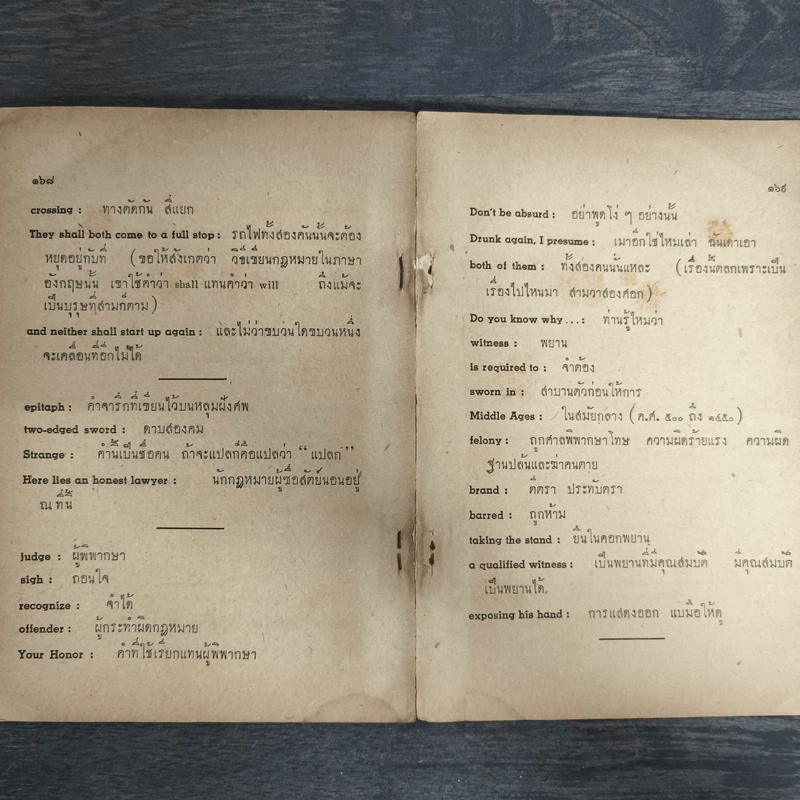 ๑๖๘
crossing : ทางตัดกัน สี่แยก
They shall both come to a full stop : รถไฟทั้งสองคันนั้นจะต้อง
หยุดอยู่กับที่ (ขอให้สังเกตว่า วิธีเขียนกฎหมายในภาษา
อังกฤษนั้น เขาใช้คำว่า shall แทนคำว่า will ถึงแม้จะ
เป็นบุรุษที่สามก็ตาม)
and neither shall start up again : และไม่ว่าขบวนใดขบวนหนึ่ง
จะเคลื่อนที่อีกไม่ได้
epitaph : คำจารึกที่เขียนไว้บนหลุมฝังศพ
two-edged sword : ดาบสองคม
Strange : คำนี้เป็นชื่อคน ถ้าจะแปลก็คือแปลว่า “แปลก”
Here lies an honest lawyer : นักกฎหมายผู้ซื่อสัตย์นอนอยู่
ณ ที่นี้
judge : ผู้พิพากษา
sigh : ถอนใจ
recognize : จำได้
offender : ผู้กระทำผิดกฎหมาย
Your Honor : คำที่ใช้เรียกแทนผู้พิพากษา
๑๖๙
Don't be absurd : อย่าพูดโง่ ๆ อย่างนั้น
Drunk again, I presume : เมาอีกใช่ไหมเล่า ฉันเดาเอา
both of them : ทั้งสองคนนั้นแหละ (เรื่องนี้ตลกเพราะเป็น
เรื่องไปไหนมา สามวาสองศอก)
Do you know why...: ท่านรู้ไหมว่า
witness : พยาน
is required to : จำต้อง
sworn in : สาบานตัวก่อนให้การ
Middle Ages : ในสมัยกลาง (ค.ศ. ๕๐๐ ถึง ๑๔๕๐)
felony : ถูกศาลพิพากษาโทษ ความผิดร้ายแรง ความผิด
ฐานปล้นและฆ่าคนตาย
brand : ตีตรา ประทับตรา
barred : ถูกห้าม
taking the stand : ยืนในคอกพยาน
a qualified witness : เป็นพยานที่มีคุณสมบัติ มีคุณสมบัติ
เป็นพยานได้
exposing his hand : การแสดงออก แบมือให้ดู